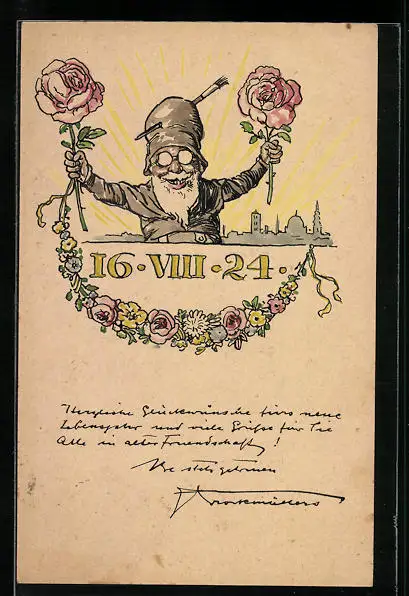 16 · VIII · 24 ·
Herzliche Glückwünsche fürs neue
Lebensjahr und viele Grüße für Sie
Alle in alter Freundschaft!
Ihre stets getreuen